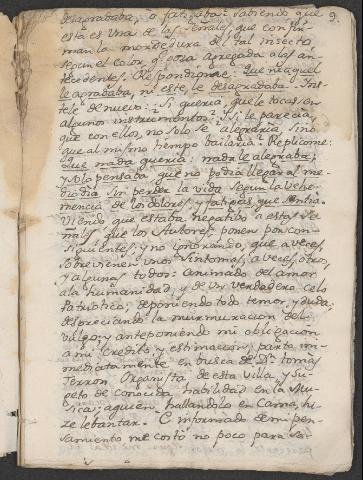 desagradaba, o fatigaba? sabiendo que 9.
esta es una de las señales, que confir-
man la mordedura del tal insecto
segun el color, q.e cosa agregada a los an-
tecedentes. Respondiome: Que ne aquel
le agradaba, ni este, le desagradaba. Ins-
tele de nuevo: Si queria, que le tocasen
algunos instrumentos? Si le parecia,
que con ellos, no solo se alegraria, sino
que al mismo tiempo bailaria? Replicome:
Que nada queria: nada le alegraba:
y solo pensaba que no podia llegar al me-
dio dia sin perder la vida segun la vehe-
mencia de los dolores, y fatigas, que sentia.
Viendo que estaba negatibo a estas Se-
ñales, que los Autores ponen por con-
siguientes, y no ignorando, que a veces,
sobrevienen unos Sintomas, a veces, otros,
y algunas todos: animado del amor
a la humanidad, y de un verdadero celo
Patriotico, deponiendo todo temor, y duda;
despreciando la murmuracion del
vulgo, y anteponiendo mi obligacion
a mi credito, y estimacion; parto in-
mediatamente en busca de D.n Tomas
Terron, Organista de esta Villa, y Su-
geto de conocida habilidad en la Mu-
sica; a quien, hallandolo en Cama, hi-
ze lebantar. E informado de mi pen-
samiento me costó no poco para sa-